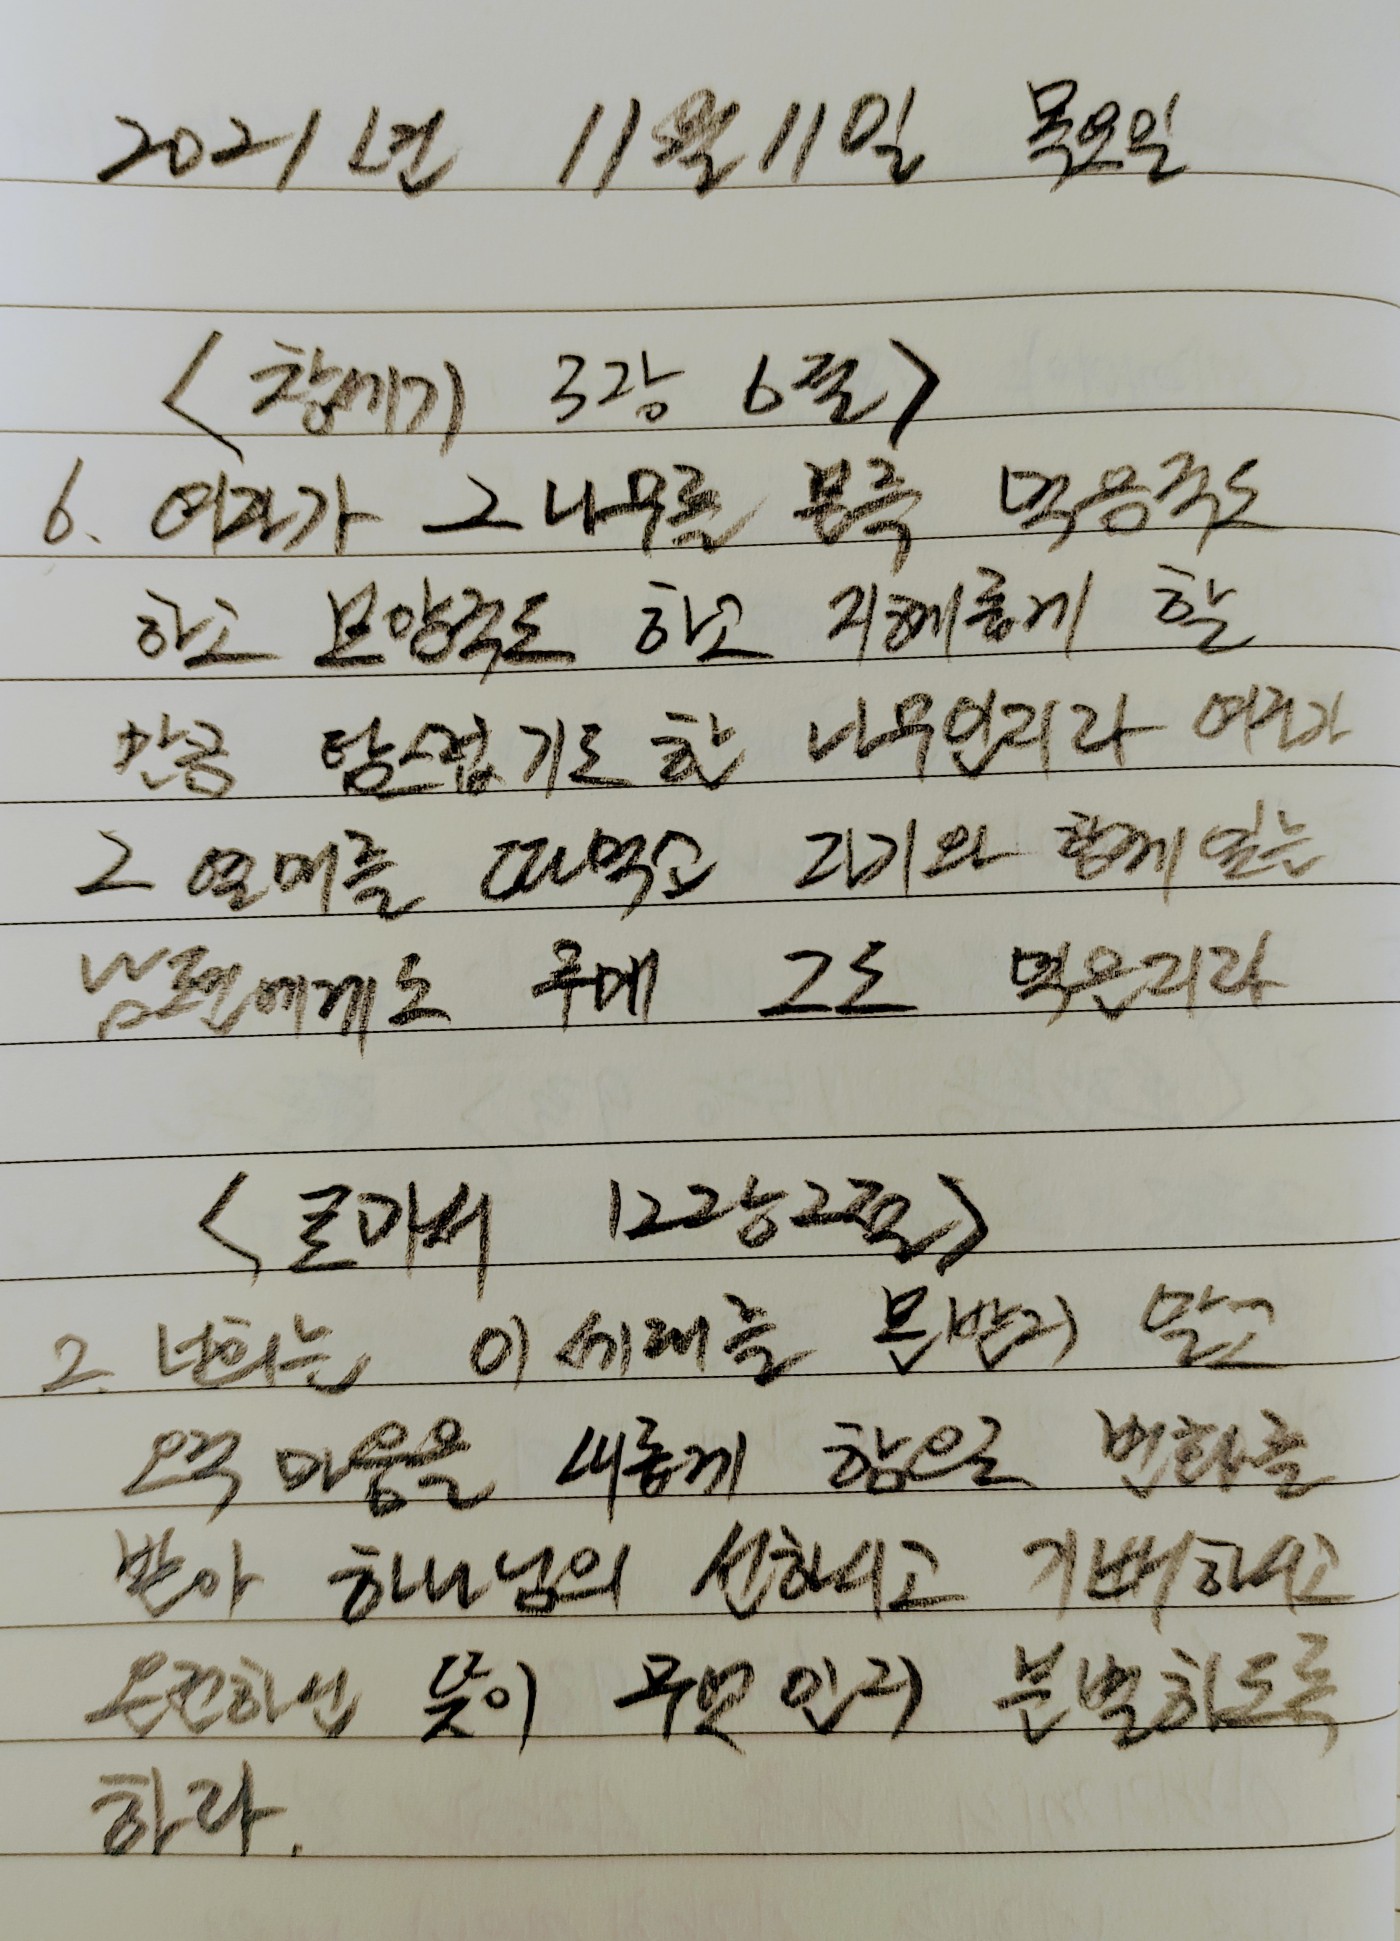 2021년 11월 11일 목요일
<창세기 3장 6절>
6. 여자가 그 나무를 본즉 먹음직도
하고 보암직도 하고 지혜롭게 할
만큼 탐스럽기도 한 나무인지라 여자가
그 열매를 따먹고 자기와 함께 있는
남편에게도 주매 그도 먹은지라
<로마서 12장 2절>
2. 너희는 이 세대를 본받지 말고
오직 마음을 새롭게 함으로 변화를
받아 하나님의 선하시고 기뻐하시고
온전하신 뜻이 무엇인지 분별하도록
하라.